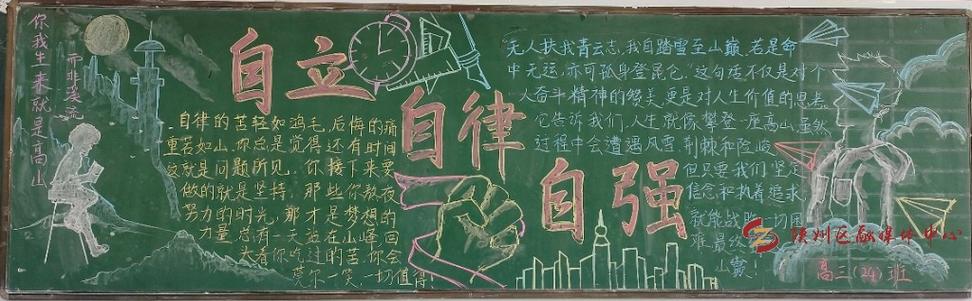 你我生来就是高山
而非溪流
自立
自律
自强
自律的苦轻如鸿毛，后悔的痛
重若山，你总是觉得还有时间
做的就是坚持，那些你熬夜
努力的时光，那才是梦想的
力量，总有一天站在山峰回
头看你吃过的苦，你会
莞尔一笑，一切值得
无人扶我青云志，我自踏雪至山巅，若是命
中无运，亦可孤身登昆仑。这句话不仅是对个
人奋斗精神的赞美，更是对人生价值的思考
它告诉我们，人生就像攀登一座高山，虽然
过程中会遭遇风雪、荆棘和险峻
但只要我们坚定
信念和执着追求
就能战胜一切困
难，最终
山巅！
陕州区融媒体中心
高三(24)班